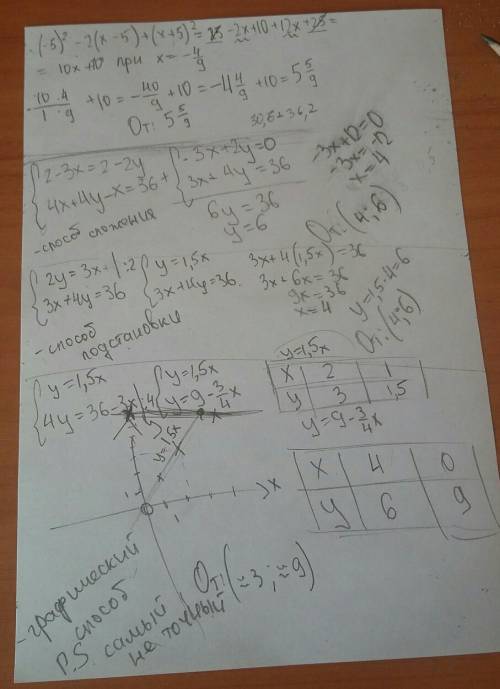 (-5)² - 2(x-5)+(x+5)² = 25 - 2x+10+12x+25 =
= 10x+10 при x = -4/9
- 10·4/1·9 +10 = -40/9 +10 = -4 4/9 +10 = 5 5/9
От: 5 5/9
30,6+36,2
{2-3x=2-2y
4x+4y-x=36 + {-3x+2y=0
3x+4y=36
6y=36
y=6
-3x+12=0
-3x=-12
x=4
От: (4;6)
-способ сложения
{2y=3x |:2
3x+4y=36 {y=1,5x
3x+4y=36.
3x+4(1,5x)=36
3x+6x=36
9x=36
x=4
y=1,5·4=6
От: (4;6)
-способ
подстановки
{y=1,5x
4y=36-3x |:4 {y=1,5x
y=9-3/4x
y=1,5x
x 2 1
y 3 1,5
y=9-3/4x
x 4 0
y 6 9
y=1,5x
x
1
1
От: (≈3; ≈9)
-графический
способ
P.S. самый
не точный